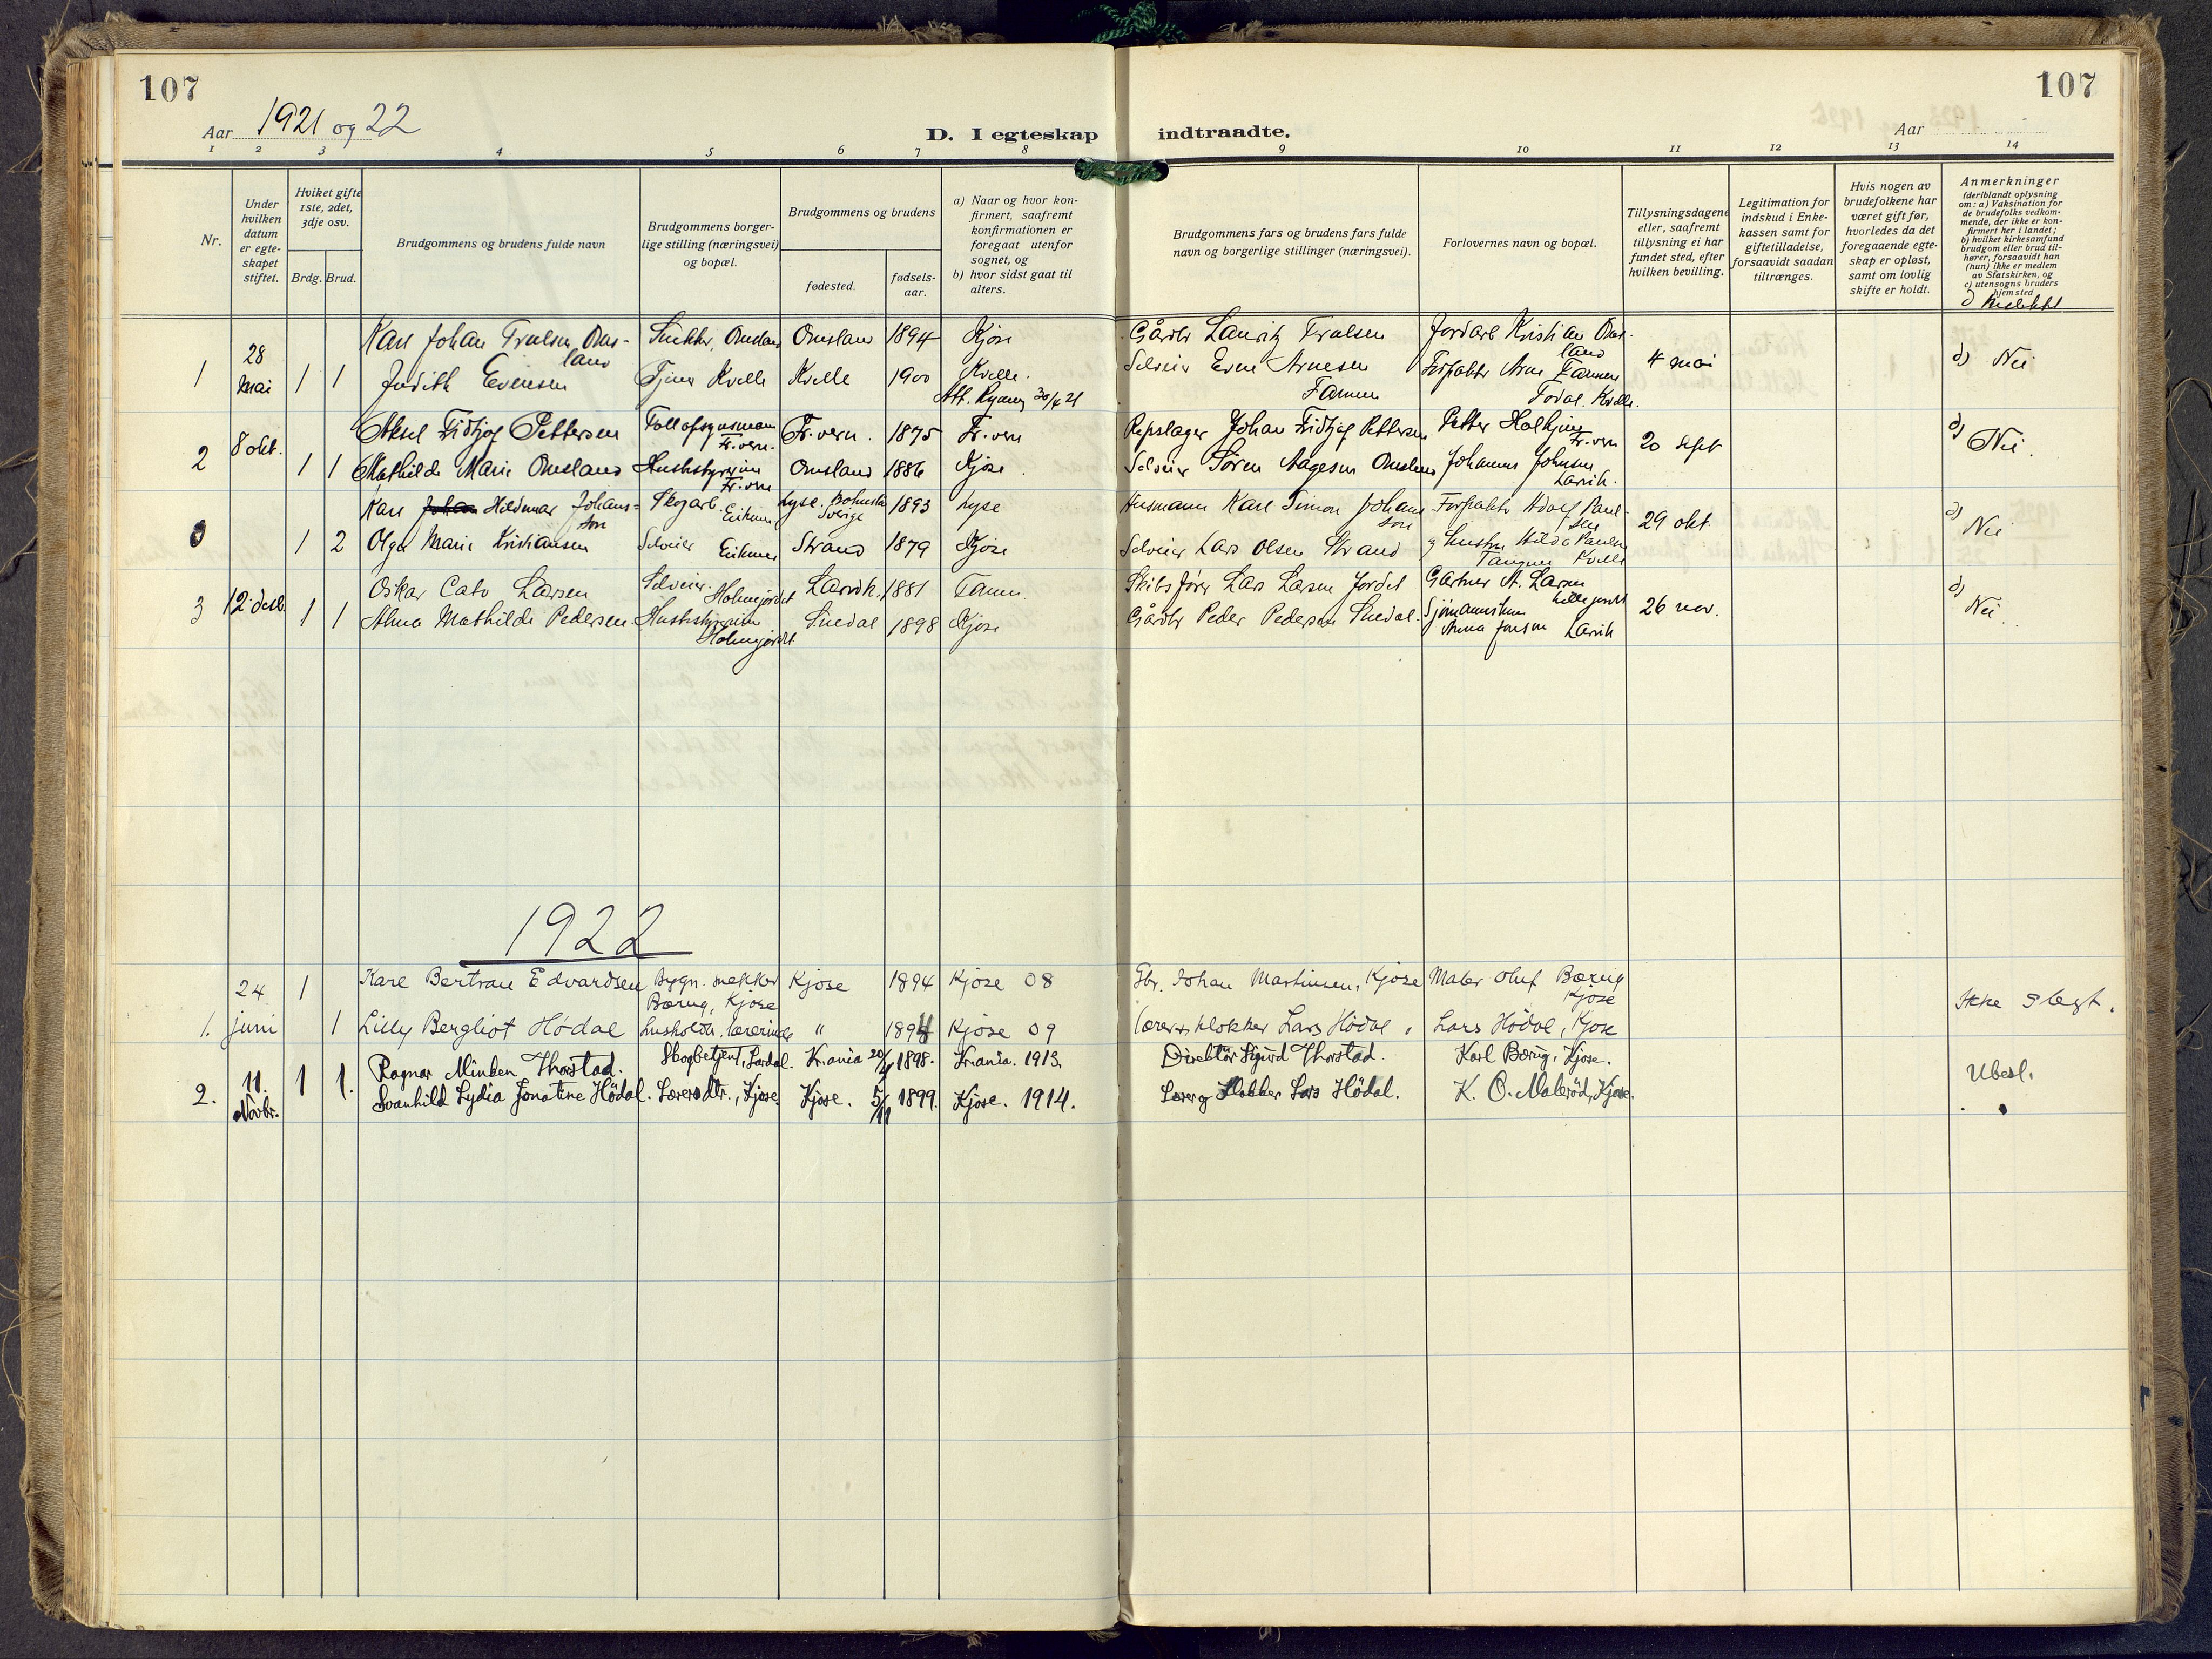 107
107
Aar 1921 og 22
D. I egteskap indtraadte.
Aar
1 2 3 4 5 6 7 8 9 10 11 12 13 14
Nr.
Under hvilken datum er egteskapet stiftet.
Hviket gifte 1ste, 2det, 3dje osv.
Brdg. Brud.
Brudgommens og brudens fulde navn
Brudgommens borgerlige stilling (næringsvei) og bopæl.
Brudgommens og brudens
fødested.
fødselsaar.
a) Naar og hvor konfirmert, saafremt konfirmationen er foregaat utenfor sognet, og
b) hvor sidst gaat til alters.
Brudgommens fars og brudens fars fulde navn og borgerlige stillinger (næringsvei).
Forlovernes navn og bopæl.
Tillysningsdagene eller, saafremt tillysning ei har fundet sted, efter hvilken bevilling.
Legitimation for indskud i Enkekassen samt for giftetilladelse, forsaavidt saadan tiltrænges.
Hvis nogen av brudefolkene har været gift før, hvorledes da det foregaaende egteskap er opløst, samt om lovlig skifte er holdt.
Anmerkninger
(deriblandt oplysning om: a) Vaksination for de brudefolks vedkommende, der ikke er konfirmert her i landet;
b) hvilket kirkesamfund brudgom eller brud tilhører, forsaavidt han (hun) ikke er medlem av Statskirken, og
c) utensogns bruders hjemsted
d)
Karl Johan Trulsen Omsland Omsland 1894 Kjose Gårdbr Lauritz Trulsen Kristian Omsland
1 28 mai 1 1 Judith Evensen Kvelle Kvelle 1900 Kvelle. Selveier Even Arnesen Farmen Arne Farmen Kvelle. 4 mai d) Nei
Att. 30/4 21
Aksel Fridtjof Pettersen Fr.vern. Fr.vern. 1875 Fr.vern Repslager Johan Fridtjof Pettersen Petter Fr.vern
2 8 okt. 1 1 Mathilde Marie Omsland Husbstyrerin Fr.vern Omsland 1886 Kjose Selveier Søren Aagesen Omsland Johannes Johnsen Larvik. 20 sept d) Nei.
Karl Johan Hildmar Johansson Skogarb. Eikenes Lyse. Bohuslen Sverige 1893 Lyse Husmann Karl Simon Johansson Adolf Paulsen
0 1 2 Olga Marie Kristiansen Selveier Eikenes Strand 1879 Kjose Selveier Lars Olsen Strand og hustru Hilda Paulsen Kvelle 29 okt. d) Nei
Oskar Cato Larsen Selveier. Holmejordet Larvik. 1881 Tanum Skibsfører Lars Larsen Jordet Gartner A. Larsen
3 12 desb. 1 1 Alma Mathilde Pedersen Husbstyrerin Holmejordet 1898 Kjose Gårdbr Peder Pedersen Anna Jensen Larvik 26 nov. d) Nei.
1922
24 1 Kare Bertran Edvardsen Bygn. snekker Bærug, Kjose Kjose 1894 Kjose 08 Gbr. Johan Martinsen, Kjose Maler Oluf Bærug Kjose
1. juni 1 Lilly Bergliot Hødal husholdn. lærerinde " 1894 Kjose 09 Lærer og klokker Lars Hødal, Lars Hødal, Kjose Ikke slegt.
Ragnar Minken Thorstad. Skogbetjent, Lardal. Kr.ania 1898. Kr.ania. 1913. Direktør Sigurd Thorstad. Karl Bærug, Kjose.
2. 11. Novbr. 1 1. Svanhild Lydia Jonatine Hödal. Lærersdtr., Kjose. Kjose. 5/11 1899. Kjose. 1914. Lærer og klokker Lars Hödal. K. O. Maleröd, Kjose. Ubesl.